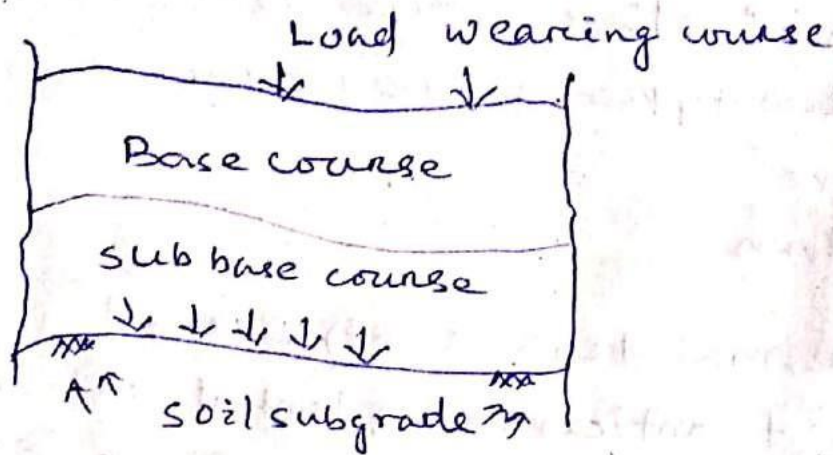 Load wearing course
Base course
sub base course
soil subgrade